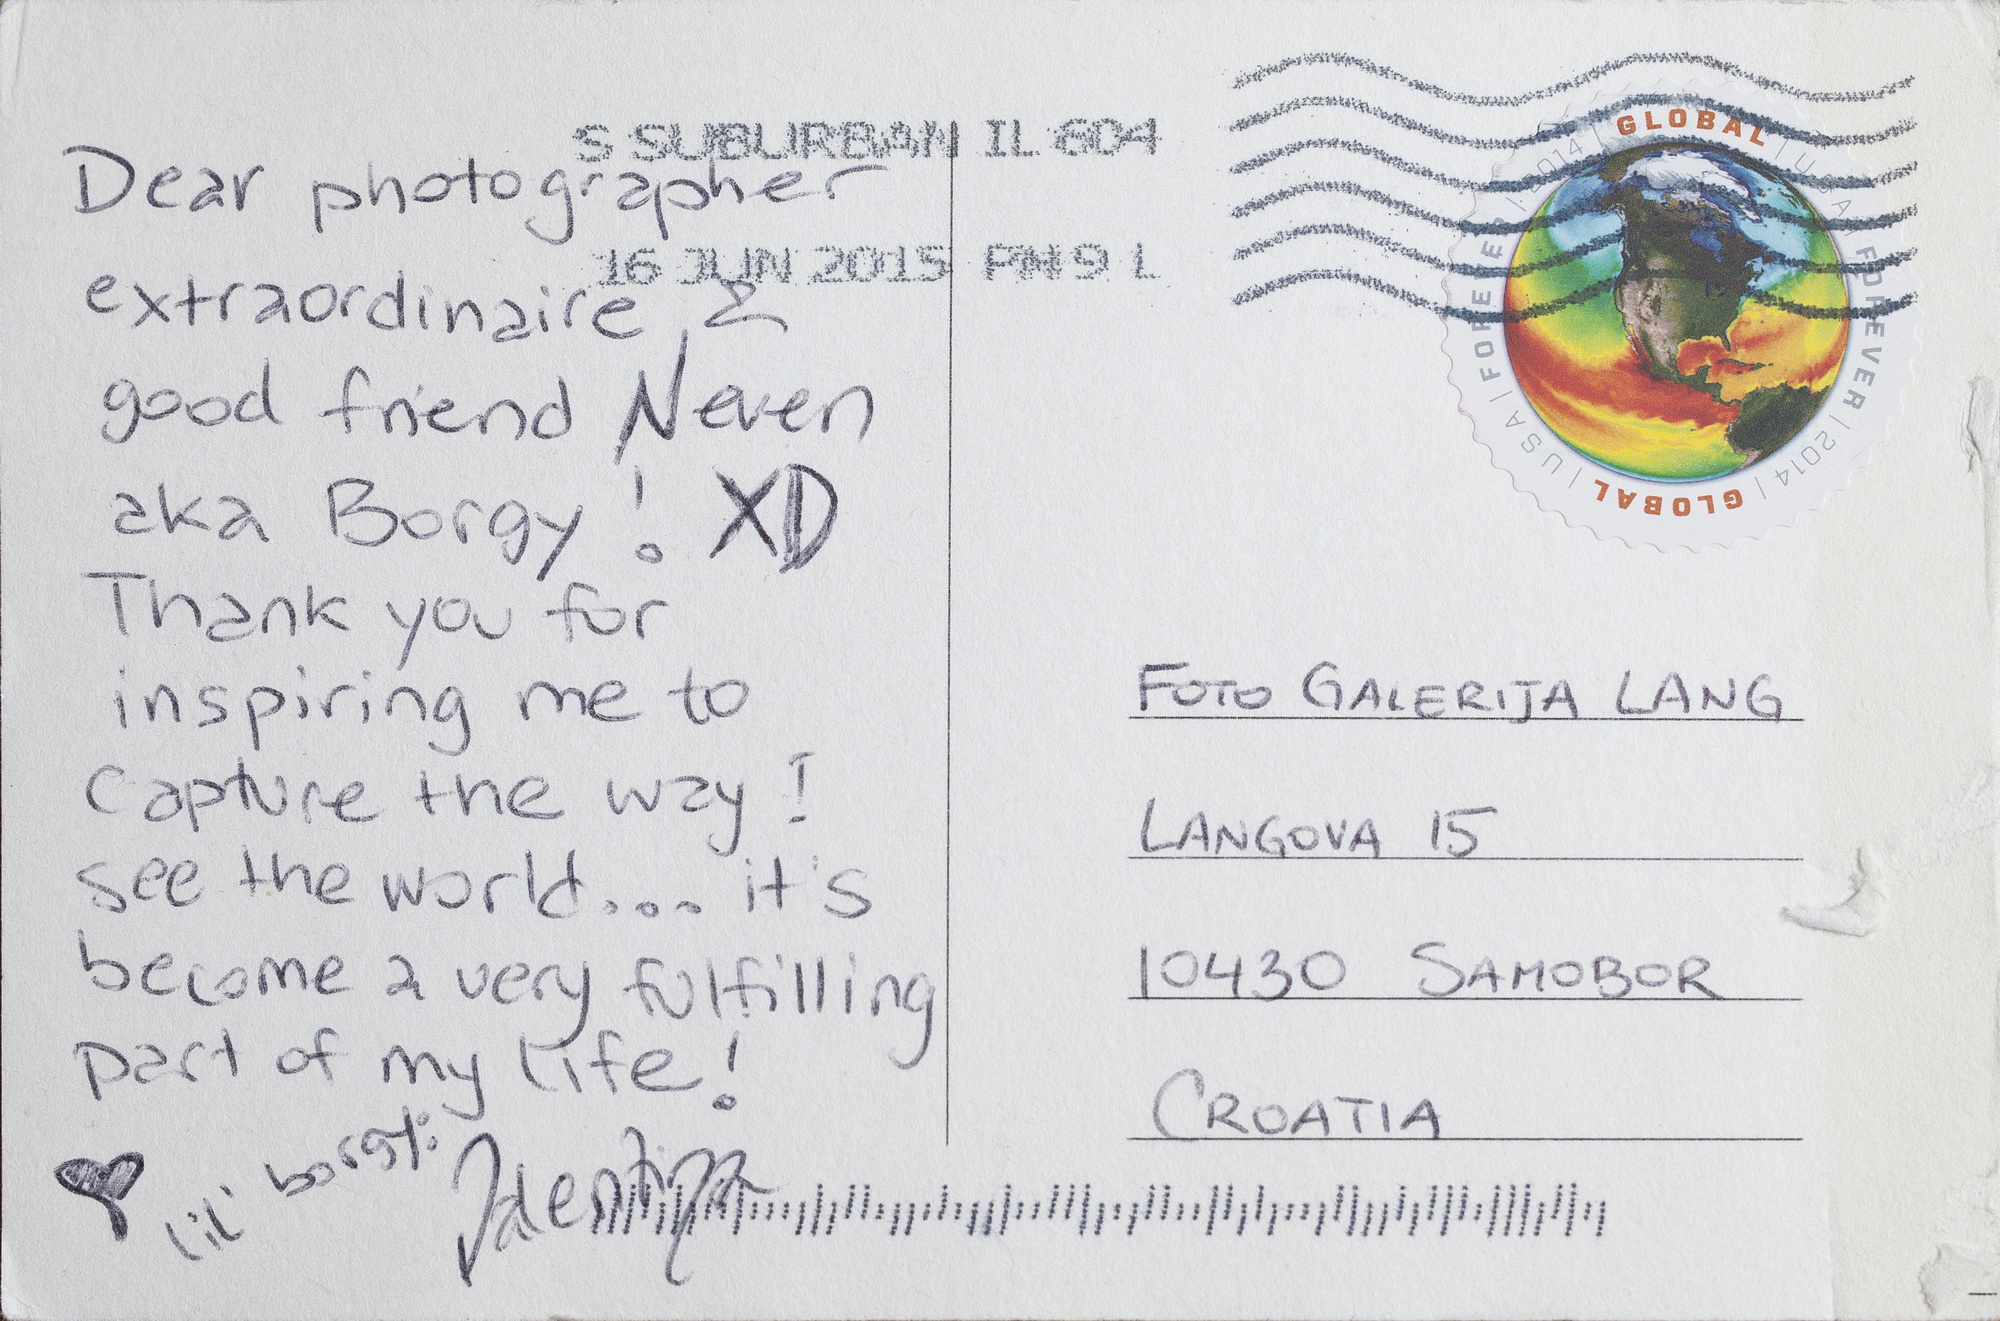 S SUBURBAN IL 604
16 JUN 2015 PM 9 L
GLOBAL | USA | FOREVER | 2014 | GLOBAL | USA | FOREVER | 2014 |
Dear photographer
extraordinaire &
good friend Neven
aka Borgy! XD
Thank you for
inspiring me to
capture the way I
see the world... it's
become a very fulfilling
part of my life!
lil' borgy:
FOTO GALERIJA LANG
LANGOVA 15
10430 SAMOBOR
CROATIA